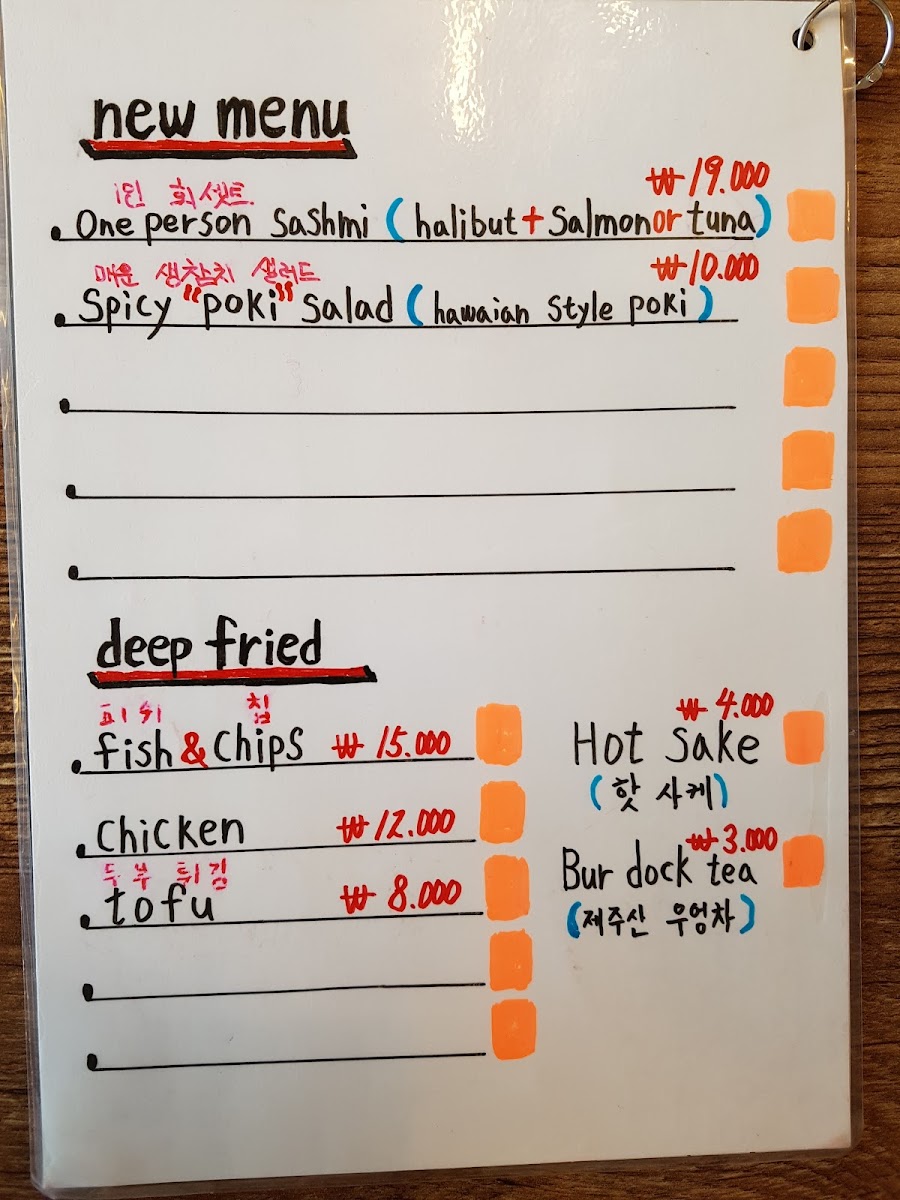 new menu
1인 회셋트
₩19.000
One person sashmi (halibut + Salmon or tuna)
매운 생참치 샐러드
₩10.000
Spicy "poki" salad (hawaian style poki)
deep fried
피쉬 칩
fish & chips ₩15.000
chicken ₩12.000
두부 튀김
tofu ₩8.000
₩4.000
Hot sake
(핫 사케)
₩3.000
Bur dock tea
(제주산 우엉차)